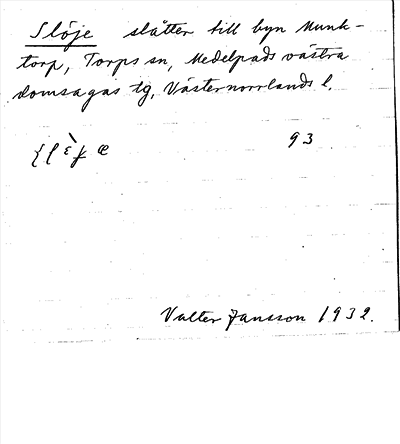 Slöje slåtter till byn Munk-
torp, Torps sn, Medelpads västra
domsagas tg, Västernorrlands l.
93
Valter Jansson 1932.